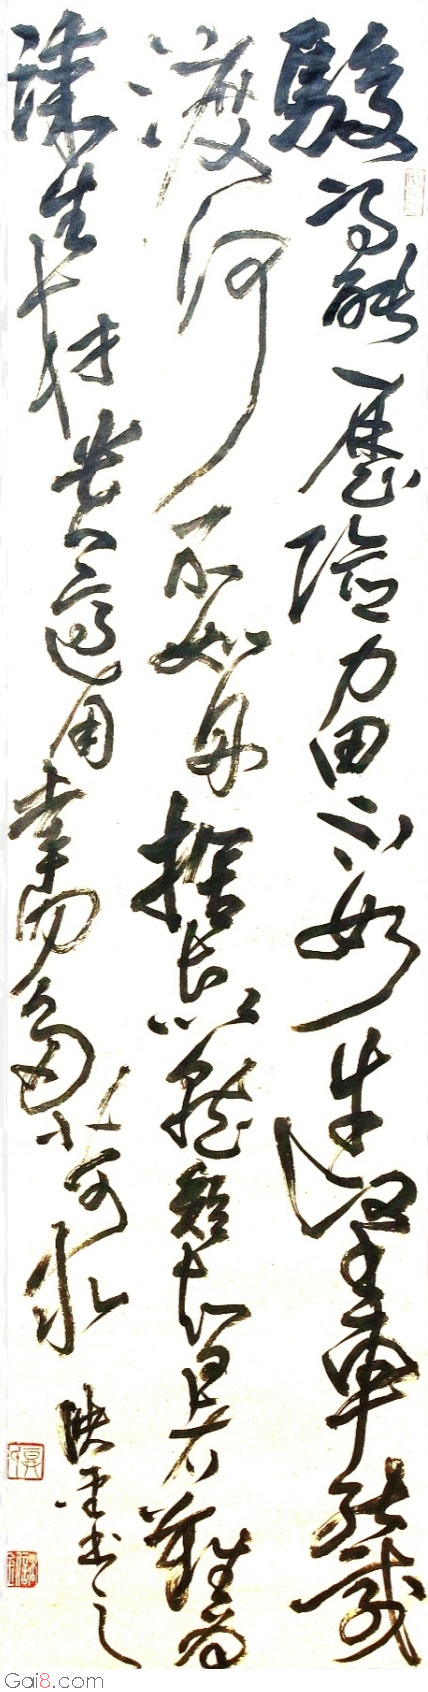 駿馬能歷險力田不如牛堅車能載
渡河不如舟捨長以就短智者難為
謀生材貴適用幸勿多苛求
書之
Gai8.com